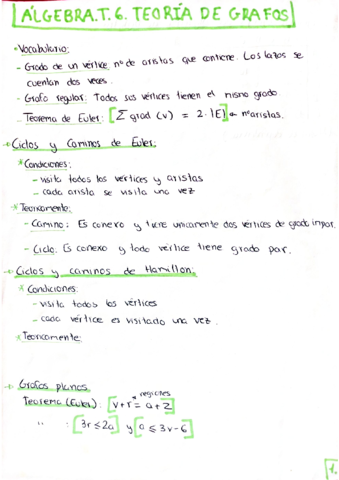 ÁLGEBRA.T.6. TEORÍA DE GRAFOS
• Vocabulario:
- Grado de un vértice: nº de aristas que contiene. Los lazos se
cuentan dos veces.
- Grafo regular: Todos sus vértices tienen el mismo grado.
- Teorema de Euler: [Σ grad (v) = 2·|E|] ← nº aristas.
Ciclos y Caminos de Euler:
* Condiciones:
- visita todos los vértices y aristas
- cada arista se visita una vez
* Teoricamente:
- Camino: Es conexo y tiene unicamente dos vértices de grado impar.
- Ciclo. Es conexo y todo vértice tiene grado par.
Ciclos y caminos de Hamilton.
* Condiciones:
- visita todos los vértices
- cada vértice es visitado una vez.
* Teoricamente:
Grafos planos
regiones
Teorema (Euler): [v+r = a+2]
" : [3r ≤ 2a] y [a ≤ 3v-6]
1.